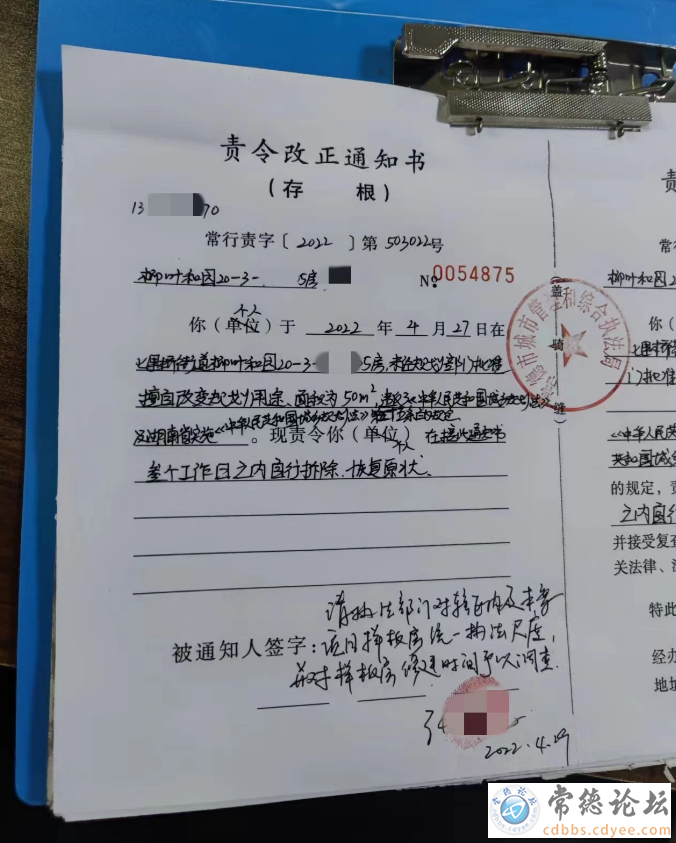 责令改正通知书
（存 根）
13 70
常行责字〔2022〕第503022号
柳叶和园20-3- 5房
№0054875
个人
你（单位）于 2022 年 4 月 27 日在
七里桥街道柳叶和园20-3- 5房，未经规划部门批准
擅自改变规划用途、面积为50m²，违反《中华人民共和国城乡规划法》
及湖南省实施《中华人民共和国城乡规划法》
。现责令你（单位）在接此通知书
个人
叁个工作日之内自行拆除、恢复原状。
请执法部门对辖区内及本案
被通知人签字：项目样板房统一执法尺度，
并对样板房修建时间予以调查.
2022.4.27
盖 骑 缝
常德市城市管理和综合执法局
责
常行
柳叶和园2
你（
七里桥
门批准
《中华人民
共和国城乡
的规定，责
之内自行
并接受复查
关法律、法
特此
经办
地址
常德论坛
cdbbs.cdyee.com